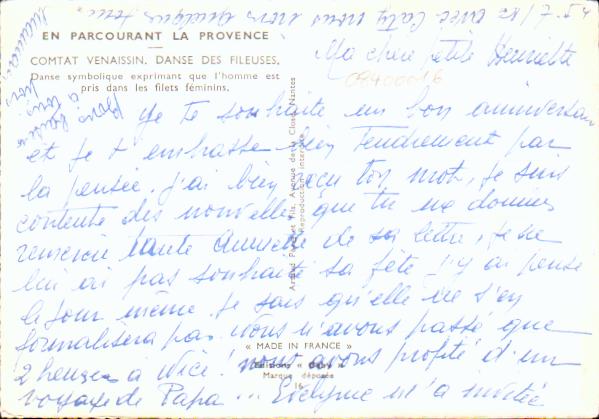 EN PARCOURANT LA PROVENCE
COMTAT VENAISSIN. DANSE DES FILEUSES.
Danse symbolique exprimant que l'homme est
pris dans les filets féminins.
Ma chère petite Henriette
08400016
Je te souhaite un bon anniversaire
et je t'embrasse bien tendrement par
la pensée. j'ai bien reçu ton mot, je suis
contente des nouvelles que tu me donnes
remercie tante Annette de sa lettre, je ne
lui ai pas souhaité sa fête j'y ai pensé
le jour même. je sais qu'elle ne s'en
formalisera pas. Nous n'avons passé que
2 heures à Nice! nous avons profité d'un
voyage de Papa... Evelyne m'a invitée
avec Caty nous irons quelques jours
à
Artaud Père et Fils, Avenue de la Close, Nantes
Reproduction interdite
« MADE IN FRANCE »
Editions « Gaby »
Marque déposée
16